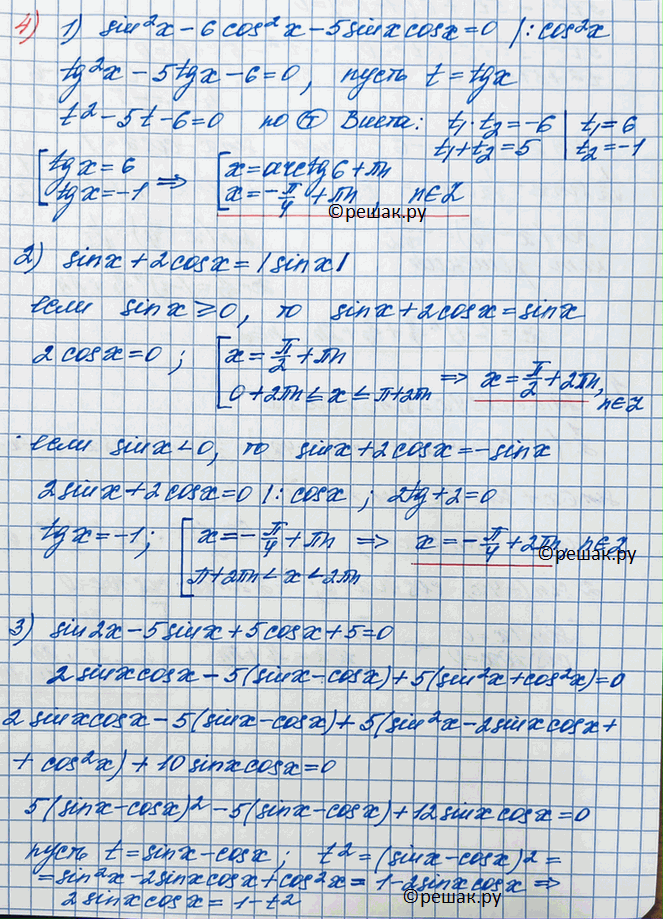 4) 1) sin²x - 6cos²x - 5sinxcosx = 0 |:cos²x
tg²x - 5tgx - 6 = 0, пусть t = tgx
t² - 5t - 6 = 0 по Т Виета: t₁·t₂ = -6 | t₁ = 6
t₁ + t₂ = 5 | t₂ = -1
[tgx = 6 => [x = arctg6 + πn
tgx = -1 x = -π/4 + πn, n∈Z
©решак.ру
2) sinx + 2cosx = |sinx|
если sinx ≥ 0, то sinx + 2cosx = sinx
2cosx = 0; [x = π/2 + πn
0 + 2πn ≤ x ≤ π + 2πn => x = π/2 + 2πn, n∈Z
если sinx < 0, то sinx + 2cosx = -sinx
2sinx + 2cosx = 0 |:cosx ; 2tg + 2 = 0
tgx = -1; [x = -π/4 + πn => x = -π/4 + 2πn, n∈Z
©решак.ру
π + 2πn < x < 2πn
3) sin2x - 5sinx + 5cosx + 5 = 0
2sinxcosx - 5(sinx - cosx) + 5(sin²x + cos²x) = 0
2sinxcosx - 5(sinx - cosx) + 5(sin²x - 2sinxcosx +
+ cos²x) + 10sinxcosx = 0
5(sinx - cosx)² - 5(sinx - cosx) + 12sinxcosx = 0
пусть t = sinx - cosx; t² = (sinx - cosx)² =
= sin²x - 2sinxcosx + cos²x = 1 - 2sinxcosx =>
2sinxcosx = 1 - t²
©решак.ру